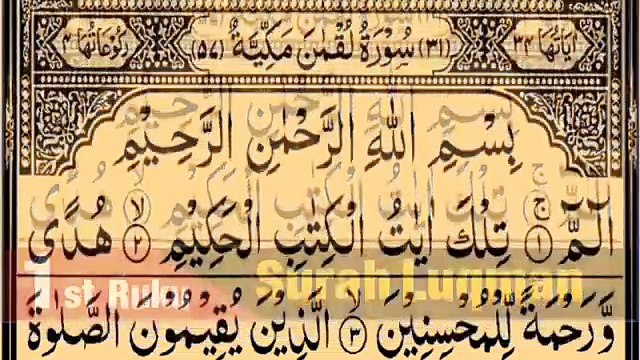 اٰیَاتُهَا ٣٤ (٣١) سُوْرَةُ لُقْمٰنَ مَكِّیَّةٌ (٥٧) رُكُوْعَاتُهَا ٤
بِسْمِ اللّٰهِ الرَّحْمٰنِ الرَّحِیْمِ
الٓمّٓ ۚ﴿١﴾ تِلْكَ اٰیٰتُ الْكِتٰبِ الْحَكِیْمِ ۙ﴿٢﴾ هُدًی
1st Ruku Surah Luqman
وَّ رَحْمَةً لِّلْمُحْسِنِیْنَ ۙ﴿٣﴾ الَّذِیْنَ یُقِیْمُوْنَ الصَّلٰوةَ